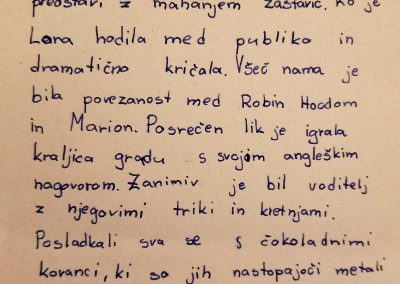 predstavi z mahanjem zastavic. Ko je
Lana hodila med publiko in
dramatično kričala. Všeč nama je
bila povezanost med Robin Hoodom
in Marion. Posrečen lik je igrala
kraljica gradu s svojim angleškim
nagovorom. Zanimiv je bil voditelj
z njegovimi triki in kretnjami.
Posladkali sva se s čokoladnimi
kovanci, ki so jih nastopajoči metali